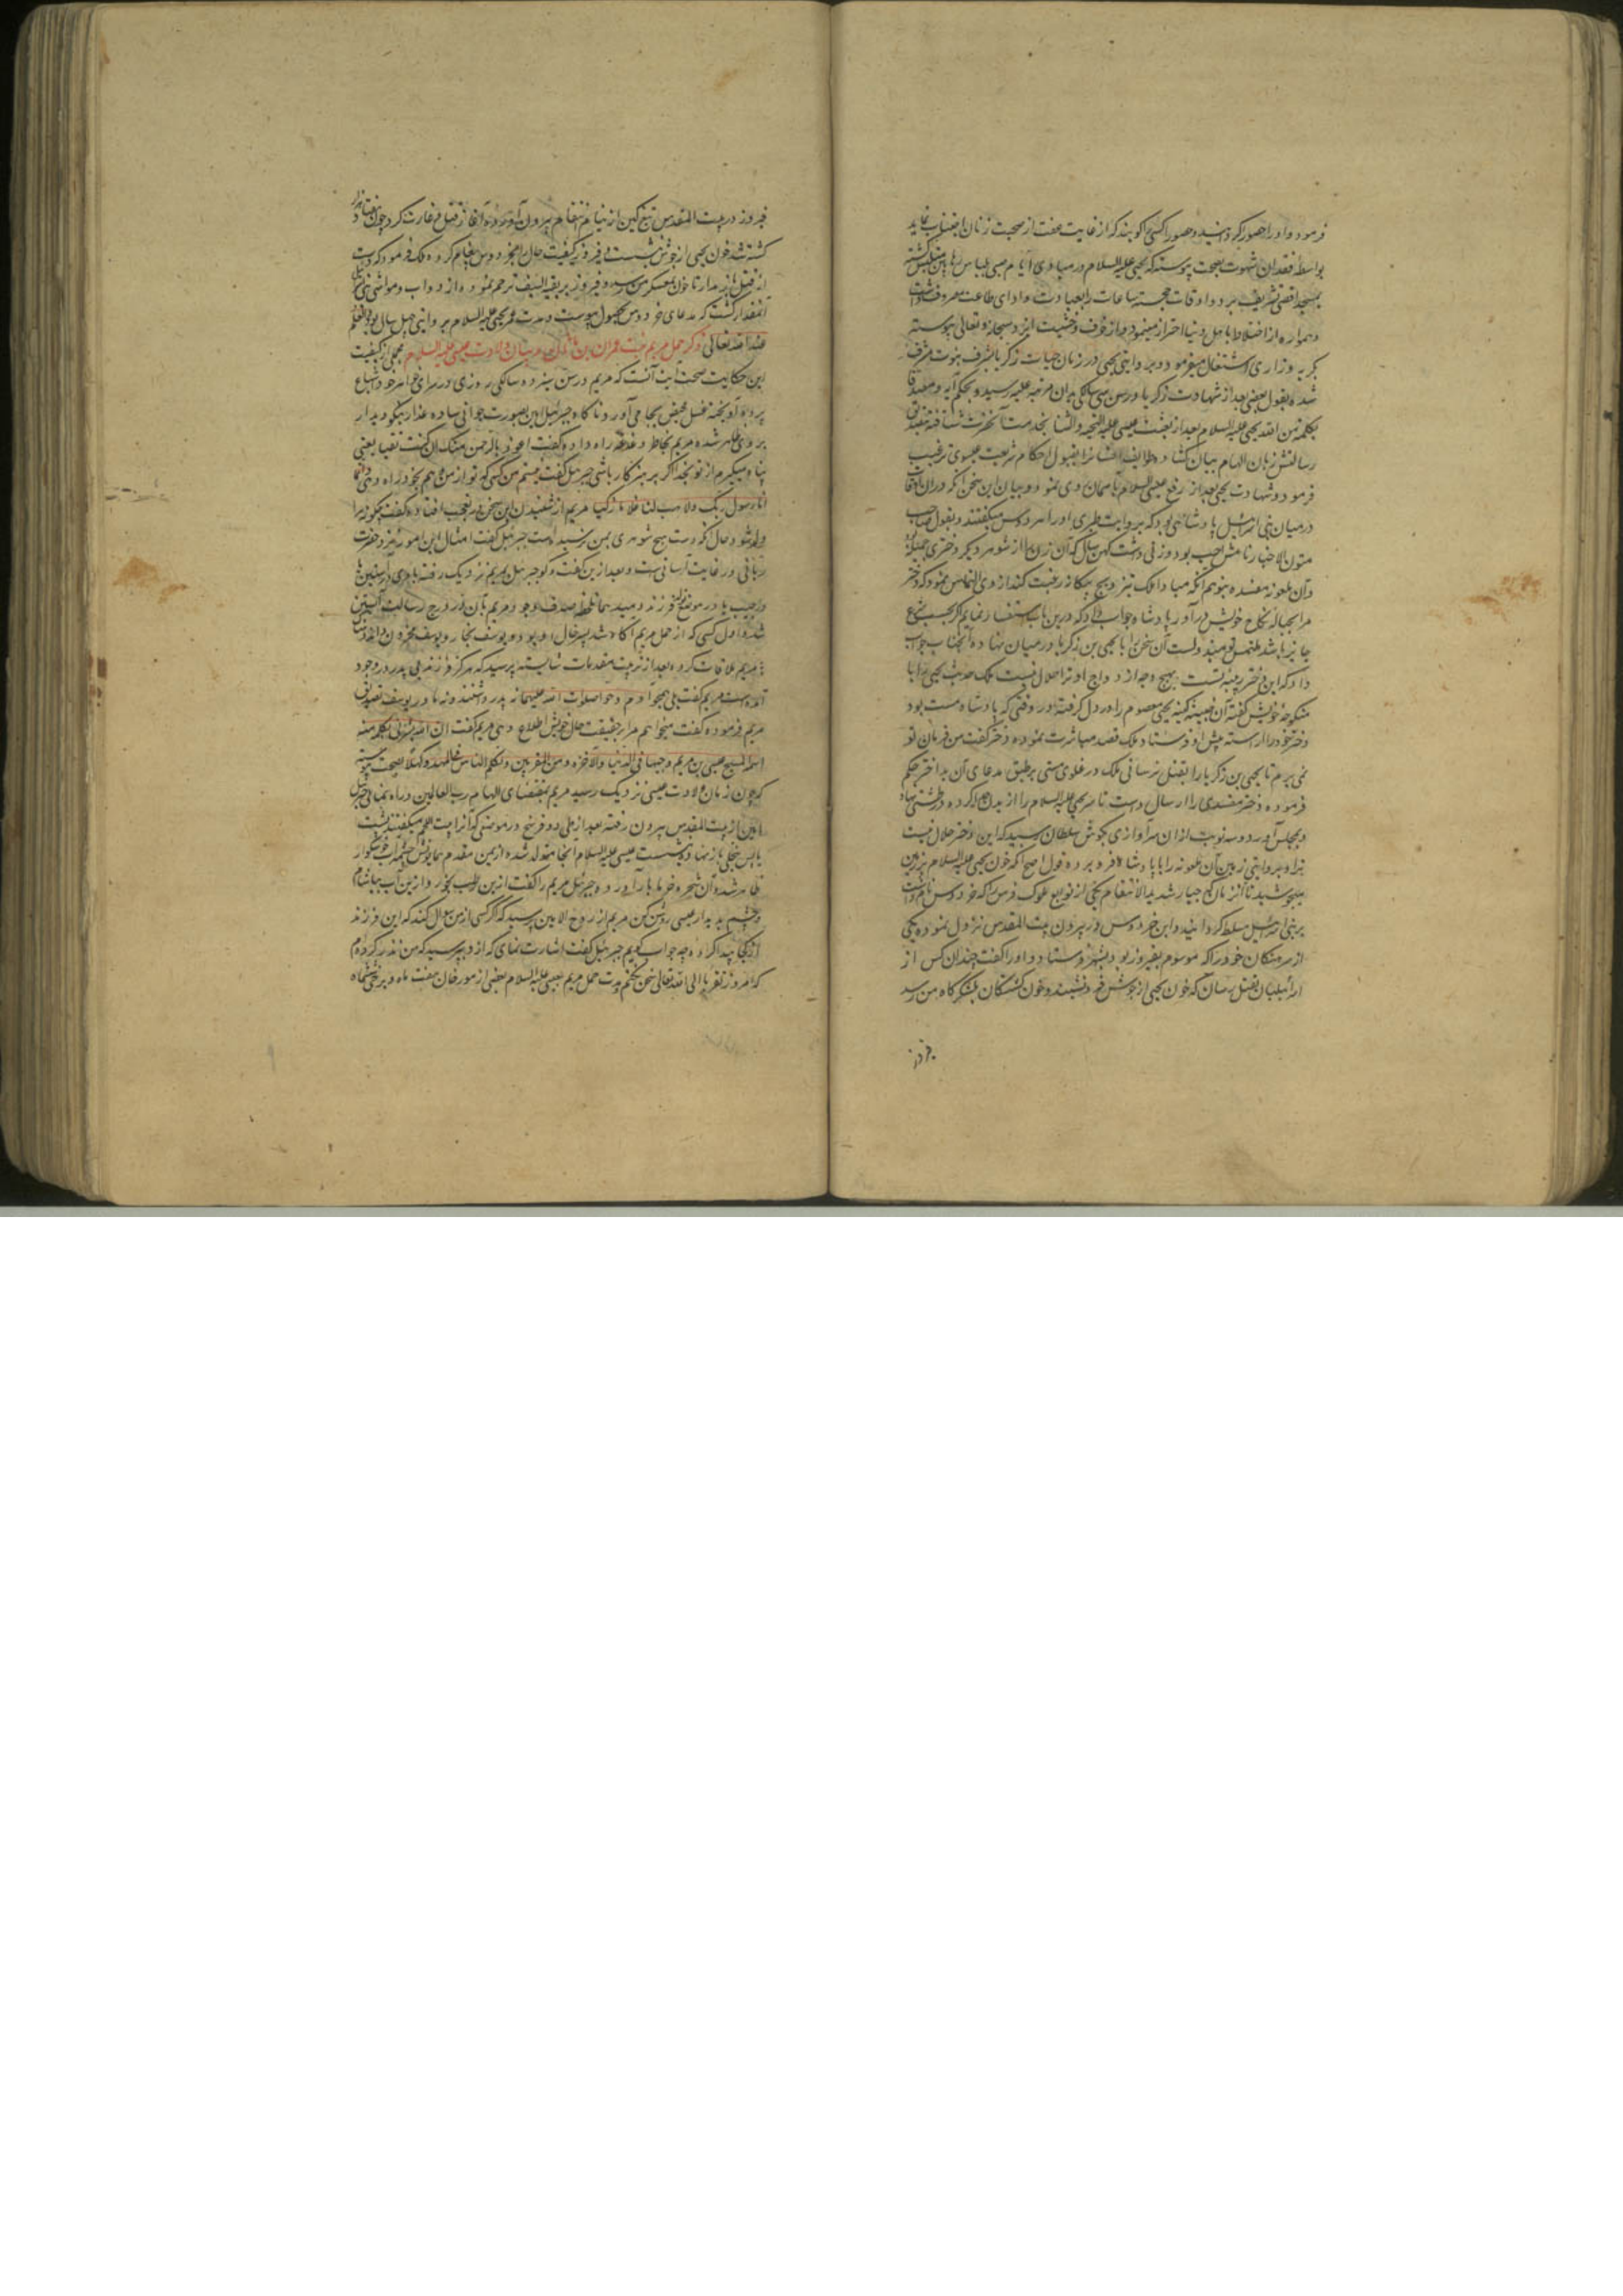 فرمود و او را حصور گردانید و حصور آکسی را کویند که از غایت عفت از صحبت زنان اجتناب نماید
بواسطه فقدان شهوت بصحت پیوسته که یحیی علیه السلام در مبادی ایام صبی پلاس
بمسجد اقصی تشریف برد و اوقات خجسته ساعات را بعبادت و ادای طاعت مصروف داشت
و همواره از اختلاط با اهل دنیا احتراز مینمود و از خوف و خشیت ایزد سبحانه و تعالی پیوسته
بکریه و زاری اشتغال میفرمود و بروایتی یحیی در زمان حیات زکریا بشرف نبوت مشرف
شده بقول بعضی بعد از شهادت زکریا در سن سی سالکی بدان مرتبه علیه رسید و بحکم آیه و مصدقا
بکلمة من الله یحیی علیه السلام بعد از بعثت عیسی علیه التحیه والثنا بخدمت آنحضرت شتافته
رسالتش زبان الهام بیان کشاده طوایف انسان را بقبول احکام شریعت عیسوی ترغیب
فرمود و شهادت یحیی بعد از رفع عیسی علیه السلام بآسمان روی نمود و بیان این سخن آنکه در آن اوقات
در میان بنی اسرائیل پادشاهی بود که بروایت طبری او را هردوس میکفتند و بقول صاحب
متون الاخبار نامش بود و زنی داشت کهن سال که آن زن را از شوهر دیگر دختری جمیله بود
و آن ملعونه مفسده بتوهم آنکه مبادا ملک بتزویج بیکانه رغبت کند از وی التماس نمود که دختر
مرا بحباله نکاح خویش درآور پادشاه جواب داد که درین باب استفسار نمایم اگر بحسب شرع
جایز باشد ملتمس تو مبذولست آن سخن را با یحیی بن زکریا در میان نهاده آنجناب جواب
داد که این دختر ربیبه تست بهیچ وجه ازدواج او ترا حلال نیست ملک حدیث یحیی را با
منکوحه خویش گفته آن خبیثه کینه یحیی معصوم را در دل گرفته در وقتی که پادشاه مست بود
دختر خود را آراسته پیش او فرستاد ملک قصد مباشرت نموده دختر گفت من فرمان تو
نمی برم تا یحیی بن زکریا را بقتل نرسانی ملک در غلوی مستی بر طبق مدعای آن بداختر حکم
فرموده دختر مفسدی را ارسال داشت تا سر یحیی علیه السلام را از بدن جدا کرده در طشتی نهاد
و بمجلس آورد و سه نوبت از آن سر آوازی بگوش سلطان رسید که این دختر حلال نیست
ترا و بروایتی زمین آن ملعونه را با پادشاه فرو برده قول اصح آنکه خون یحیی علیه السلام بر زمین
میجوشید تا آنزمان که جبار شدید الانتقام یکی از توابع ملوک فرس را که خردوس نام داشت
بر بنی اسرائیل مسلط کردانید و این خردوس در بیرون بیت المقدس نزول نموده یکی
از سرهنکان خود را که موسوم بفیروز بود بشهر فرستاد و او را گفت چندان کس از
اسرائیلیان بقتل رسان که خون یحیی از جوش فرو نشیند و خون کشتکان بلشکرگاه من رسد
فیروز در بیت المقدس تیغ کین از نیام انتقام بیرون آورده آغاز قتل و غارت کرد چون هفتاد هزار
کشته شد خون یحیی از جوش بنشست فیروز کیفیت حال بخردوس پیغام کرده ملک فرمود که دست
از قتل باز مدار تا خون بمعسکر من رسد و فیروز بر بقیه السیف ترحم نموده از دواب و مواشی بنی
آنمقدار کشت که مدعای خردوس بحصول پیوست و مدت عمر یحیی علیه السلام بروایتی چهل سال بود والعلم
عند الله تعالی ذکر حمل مریم بنت عمران بن ماثان و بیان ولادت عیسی علیه السلام مجملی از کیفیت
این حکایت صحت آیت آنست که مریم در سن سیزده سالگی روزی در سرای خواهر خود اشباع
پرده آویخته غسل حیض بجا می آورد ناکاه جبرئیل امین بصورت جوانی ساده عذار نیکو دیدار
بر وی ظاهر شده مریم بخاطر دغدغه راه داده گفت اعوذ بالرحمن منک ان کنت تقیا یعنی
پناه میگیرم از تو بخدا اگر پرهیزکار باشی جبرئیل گفت نیستم من کسی که تو از من وهم بخود راه دهی انما
انا رسول ربک لاهب لک غلاما زکیا مریم از شنیدن این سخن در تعجب افتاده گفت چگونه مرا
ولد شود و حال آنکه دست هیچ شوهری بمن نرسیده است جبرئیل گفت امثال این امور نزد حضرت
ربانی در غایت آسانی ست و بعد ازین گفت و گو جبرئیل بمریم نزدیک رفته بادی در آستین یا
در جیب یا در موضع تولد فرزند دمید همان لحظه صدف وجود مریم بآن در درج رسالت آبستن
شد و اول کسی که از حمل مریم آگاه شد پسر خال او بود و یوسف نجار و یوسف محزون و اندوهناک
با مریم ملاقات کرده بعد از ترتیب مقدمات شایسته پرسید که هرگز فرزند بی پدر در وجود
آمده است مریم گفت بلی همچو آدم و حوا صلوات الله علیهما که پدر داشتند و نه مادر یوسف تصدیق
مریم فرموده گفت میخواهم مرا بر حقیقت حال خویش اطلاع دهی مریم گفت ان الله بشرنی بکلمة منه
اسمه المسیح عیسی بن مریم وجیها فی الدنیا والآخرة ومن المقربین ویکلم الناس فی المهد وکهلا بصحت پیوسته
که چون زمان ولادت عیسی نزدیک رسید مریم بمقتضای الهام رب العالمین و راه نمائی جبرئیل
امین از بیت المقدس بیرون رفته بعد از طی دو فرسخ در موضعی که آنرا بیت اللحم میکفتند پشت
بآن نخلی باز نهاده بنشست عیسی علیه السلام آنجا متولد شده از یمن مقدم همایونش چشمه آب خوشگوار
ظاهر شد و آن شجره خرما بار آورده جبرئیل مریم را گفت ازین رطب بخور و ازین آب بیاشام
و چشم بدیدار عیسی روشن کن مریم از روح الامین پرسید که اگر کسی از من سؤال کند که این فرزند
از کجا پیدا کرده چه جواب گویم جبرئیل گفت اشارت نمای که از و بپرسید که من نذر کرده ام
که امروز تقربا الی الله تعالی سخن نکنم مدت حمل مریم بعیسی علیه السلام بعضی از مورخان هفت ماه و برخی ششماه
فیروز